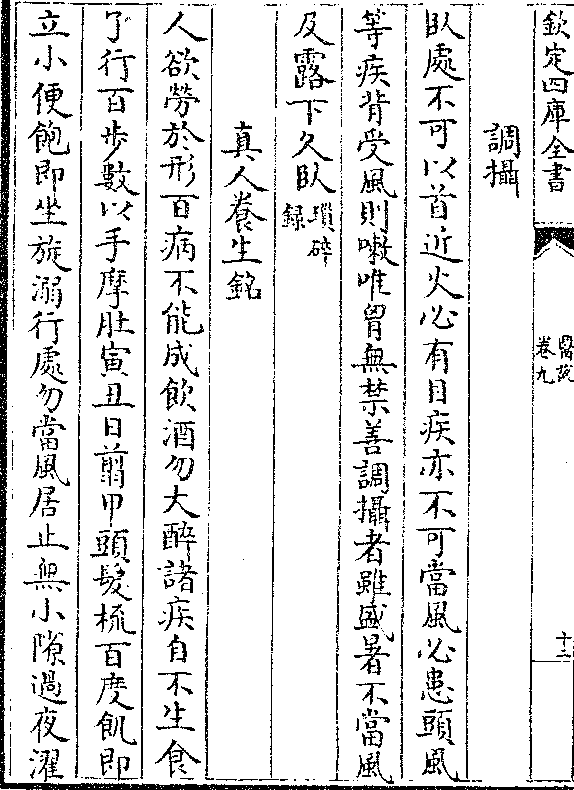 欽定四庫全書
醫説
卷九
十二
調攝
臥處不可以首近火必有目疾亦不可當風必患頭風
等疾背受風則嗽唯胷無禁善調攝者雖盛暑不當風
及露下久臥瑣碎録
真人養生銘
人欲勞於形百病不能成飲酒勿大醉諸疾自不生食
了行百步數以手摩肚寅丑日翦甲頭髮梳百度飢即
立小便飽即坐旋溺行處勿當風居止無小隙過夜濯